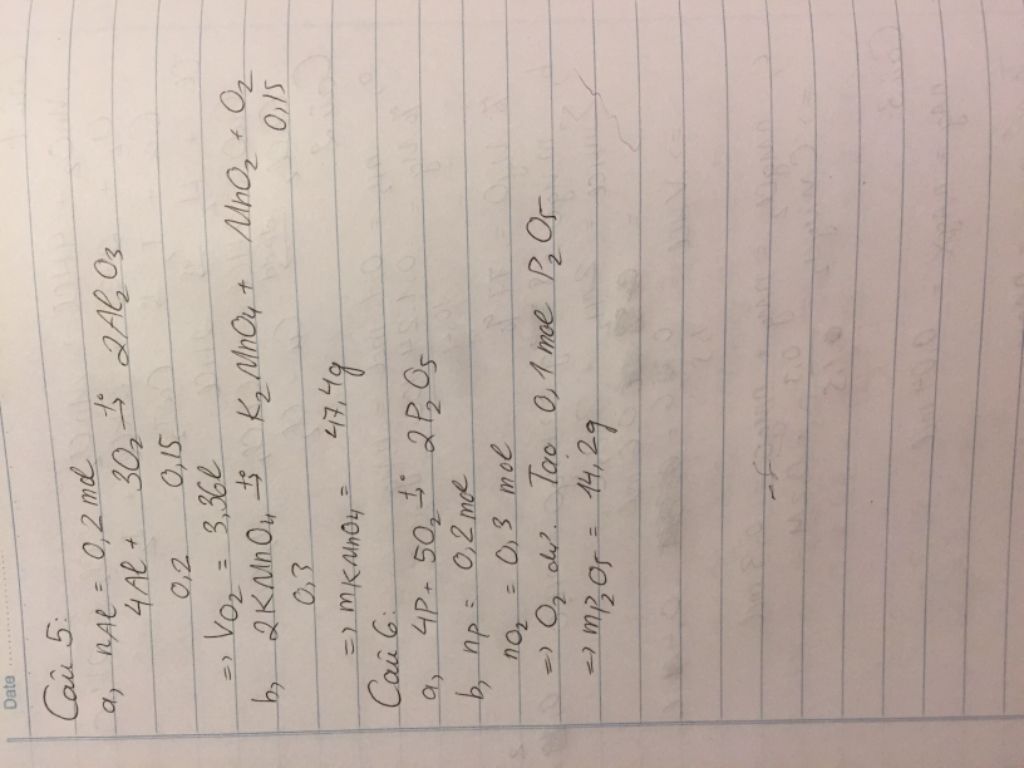 Date
Câu 5:
a, nAl = 0,2 mol
4Al + 3O₂ →t° 2Al₂O₃
0,2 0,15
=> VO₂ = 3,36l
b, 2KMnO₄ →t° K₂MnO₄ + MnO₂ + O₂
0,3 0,15
=> mKMnO₄ = 47,4g
Câu 6:
a, 4P + 5O₂ →t° 2P₂O₅
b, nP = 0,2 mol
nO₂ = 0,3 mol
=> O₂ dư. Tạo 0,1 mol P₂O₅
=> mP₂O₅ = 14,2g